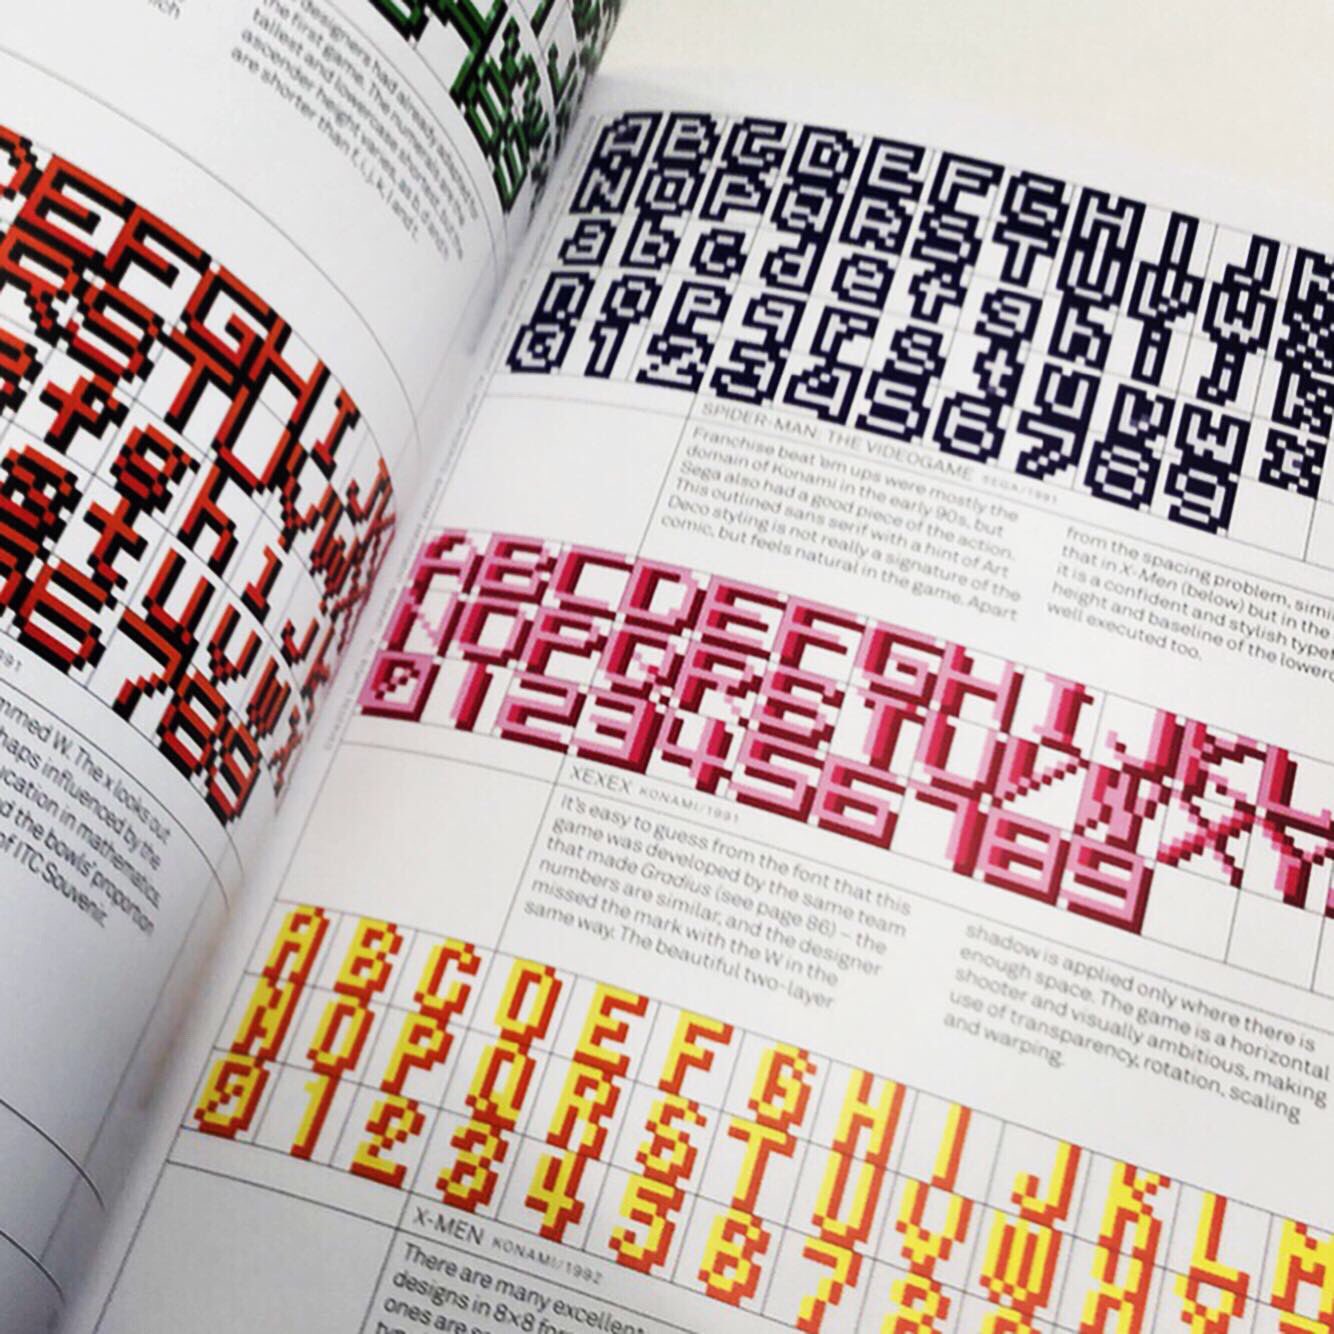 designers had already
the first game. The numerals are the
tallest and lowercase shortest, but the
ascender height varies, as b, d and h
are shorter than f, i, j, k, l and t.
A B C D E F G H I J
N O P Q R S T U V W
a b c d e f g h i j
n o p q r s t u v w
0 1 2 3 4 5 6 7 8 9
SPIDER-MAN: THE VIDEOGAME SEGA/1991
Franchise beat 'em ups were mostly the
domain of Konami in the early 90s, but
Sega also had a good piece of the action.
This outlined sans serif with a hint of Art
Deco styling is not really a signature of the
comic, but feels natural in the game. Apart
from the spacing problem,
that in X-Men (below) but in the
it is a confident and stylish
height and baseline of the
well executed too.
A B C D E F G H I J K L
N O P Q R S T U V W X Y
0 1 2 3 4 5 6 7 8 9
XEXEX KONAMI/1991
It's easy to guess from the font that this
game was developed by the same team
that made Gradius (see page 86) – the
numbers are similar, and the designer
missed the mark with the W in the
same way. The beautiful two-layer
shadow is applied only where there is
enough space. The game is a horizontal
shooter and visually ambitious, making
use of transparency, rotation, scaling
and warping.
A B C D E F G H I J K L M
N O P Q R S T U V W X Y
0 1 2 3 4 5 6 7 8 9
X-MEN KONAMI/1992
There are many excellent
designs in 8×8
ones are
E F G H I J
R S T U V W
f g h i j
s t u v w
5 6 7 8 9
1991
W. The x looks out
influenced by the
in mathematics,
d the bowls' proportion
of ITC Souvenir.